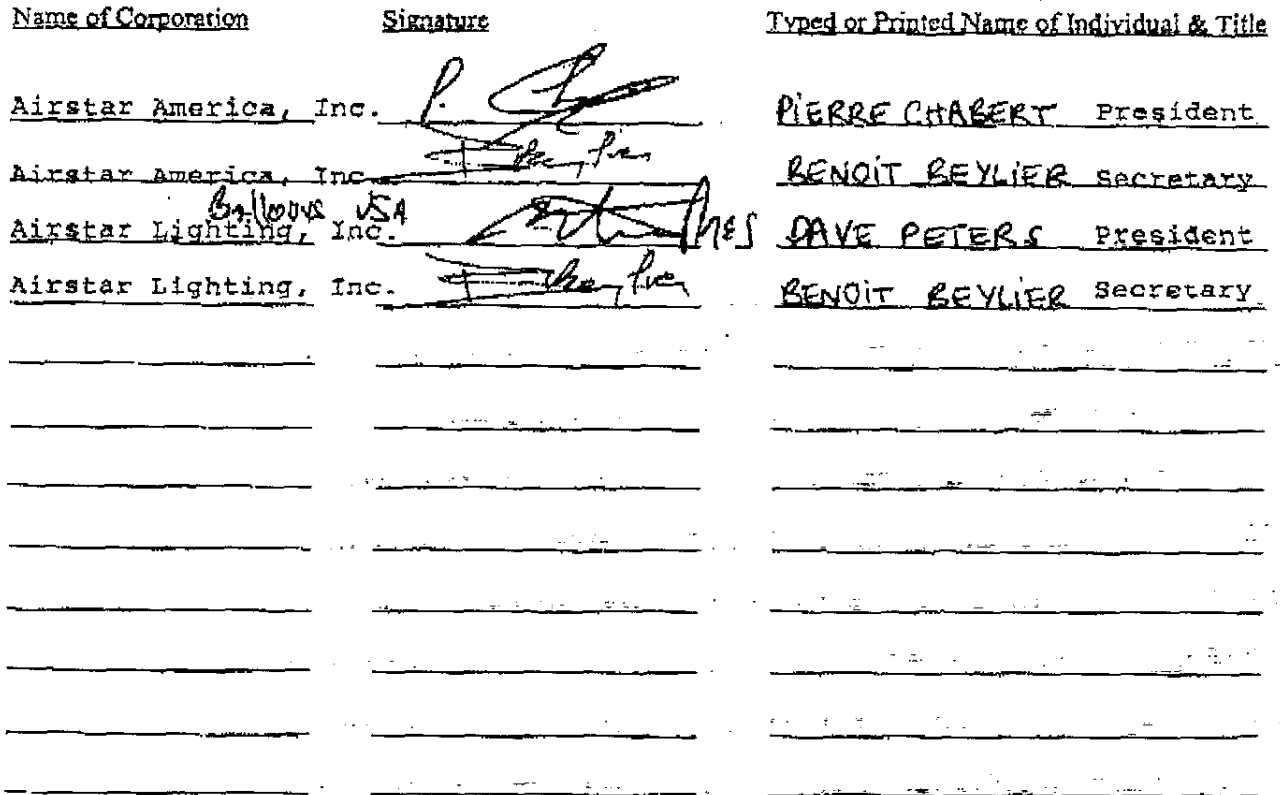 Name of Corporation Signature Typed or Printed Name of Individual & Title
Airstar America, Inc. P. PIERRE CHABERT President
Airstar America, Inc BENOIT BEYLIER Secretary
Balloons USA
Airstar Lighting, Inc. PRES DAVE PETERS President
Airstar Lighting, Inc. BENOIT BEYLIER Secretary